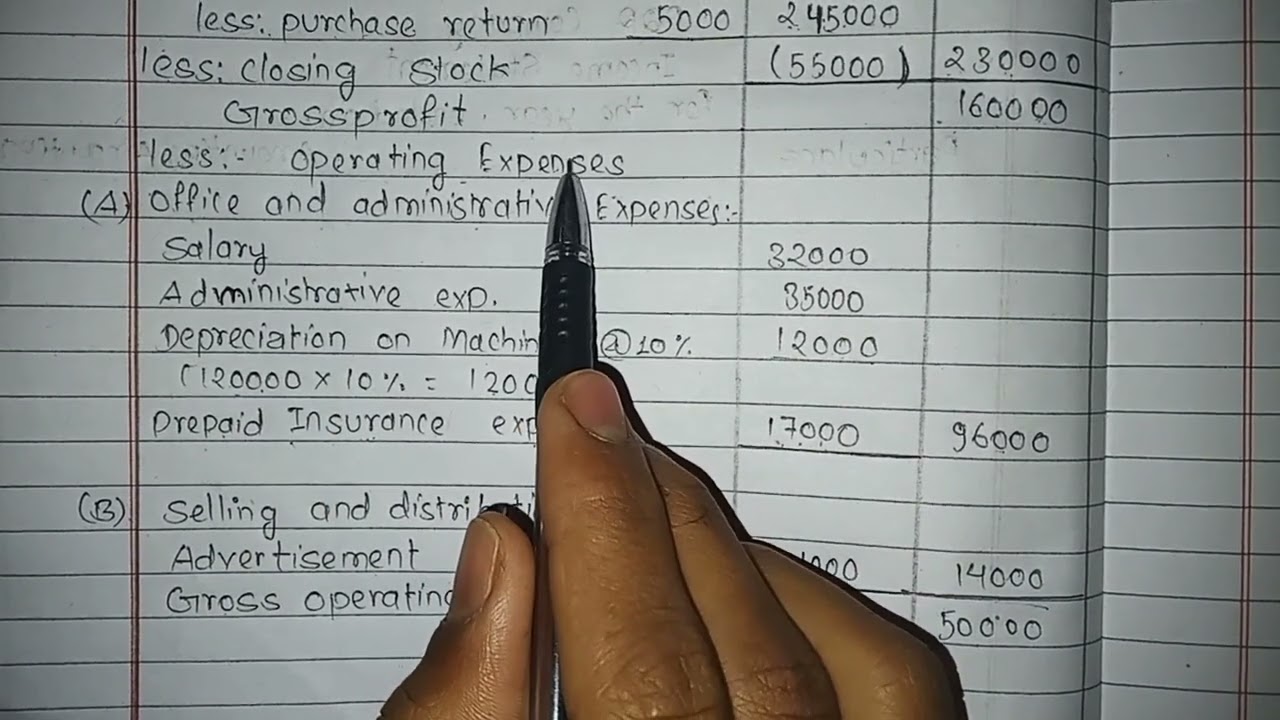 less: purchase return 5000 245000
less: closing Stock (55000) 230000
Gross profit 160000
less:- operating Expenses
(A) Office and administrativ Expenses:-
Salary 32000
Administrative exp. 35000
Depreciation on Machin @10% 12000
(120000 x 10% = 1200
Prepaid Insurance exp 17000 96000
(B) Selling and distributi
Advertisement 000 14000
Gross operating 50000